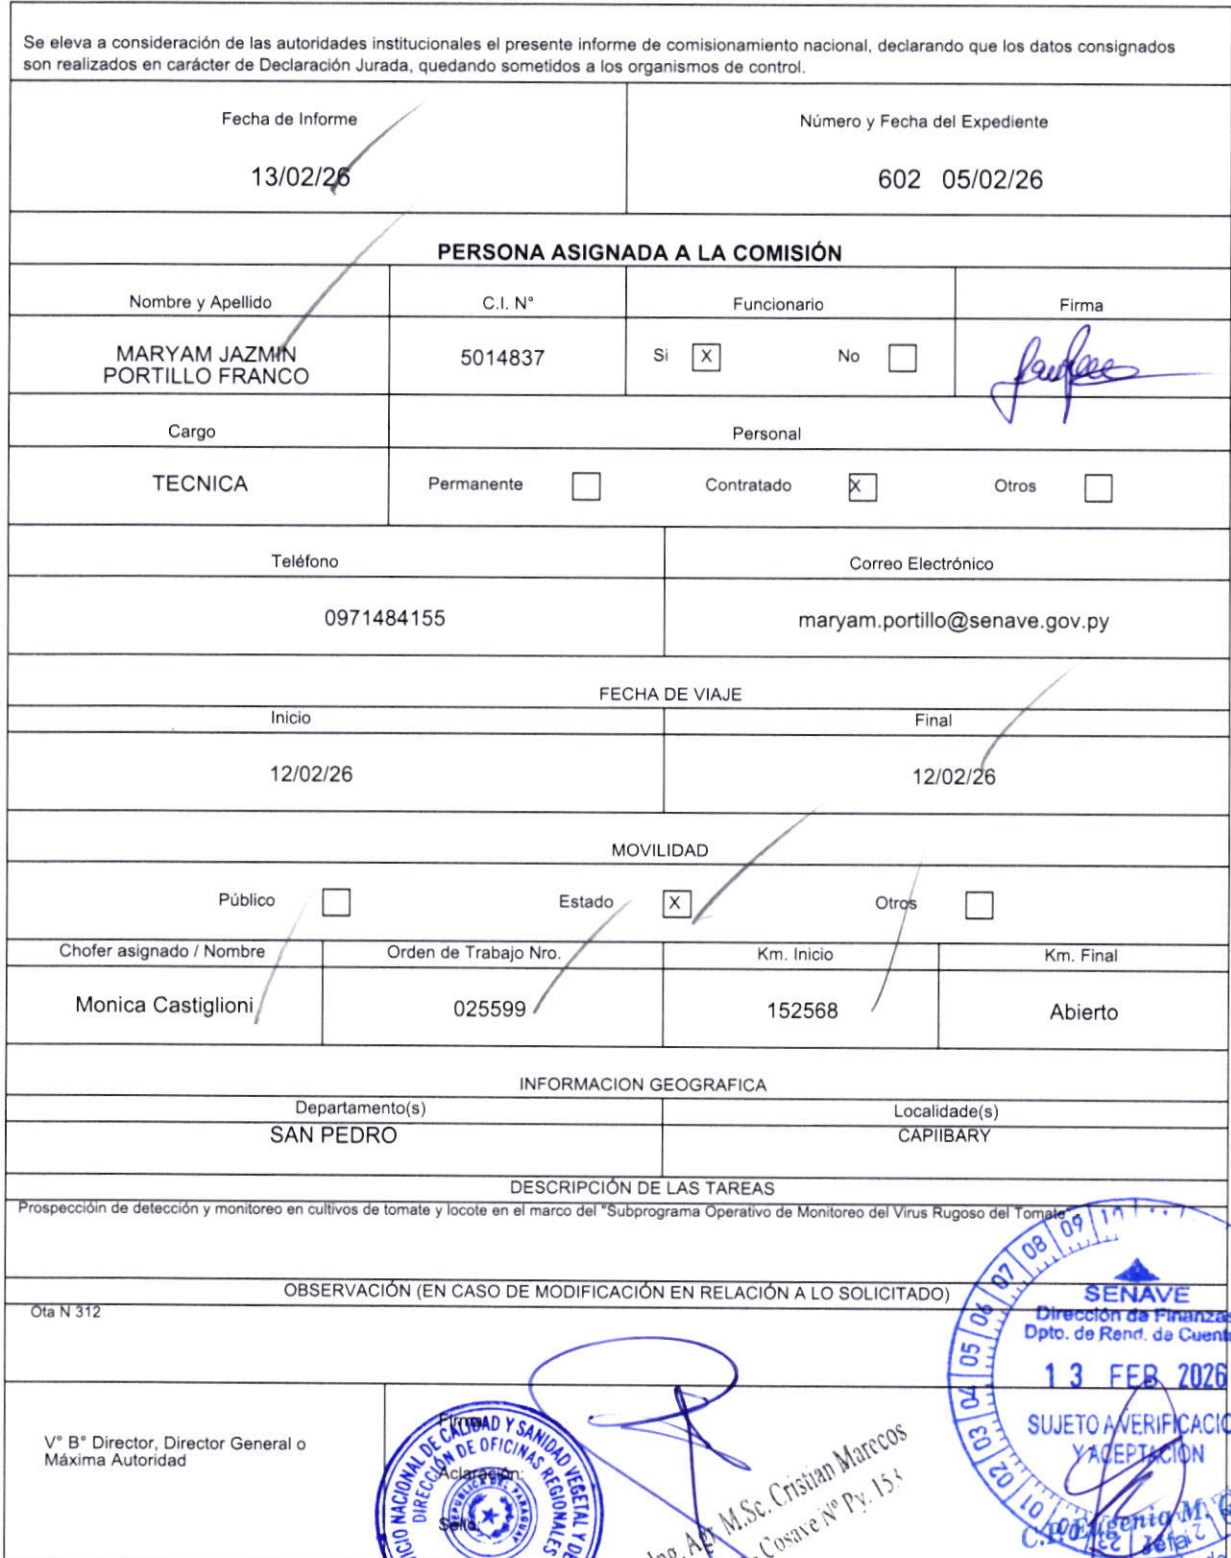 Se eleva a consideración de las autoridades institucionales el presente informe de comisionamiento nacional, declarando que los datos consignados
son realizados en carácter de Declaración Jurada, quedando sometidos a los organismos de control.
Fecha de Informe
Número y Fecha del Expediente
13/02/26
602 05/02/26
PERSONA ASIGNADA A LA COMISIÓN
Nombre y Apellido
C.I. N°
Funcionario
Firma
MARYAM JAZMIN
PORTILLO FRANCO
5014837
Si X No
Cargo
Personal
TECNICA
Permanente Contratado X Otros
Teléfono
Correo Electrónico
0971484155
maryam.portillo@senave.gov.py
FECHA DE VIAJE
Inicio
Final
12/02/26
12/02/26
MOVILIDAD
Público Estado X Otros
Chofer asignado / Nombre
Orden de Trabajo Nro.
Km. Inicio
Km. Final
Monica Castiglioni
025599
152568
Abierto
INFORMACION GEOGRAFICA
Departamento(s)
Localidade(s)
SAN PEDRO
CAPIIBARY
DESCRIPCIÓN DE LAS TAREAS
Prospeccióin de detección y monitoreo en cultivos de tomate y locote en el marco del "Subprograma Operativo de Monitoreo del Virus Rugoso del Tomate"
OBSERVACIÓN (EN CASO DE MODIFICACIÓN EN RELACIÓN A LO SOLICITADO)
Ota N 312
SENAVE
Dirección de Finanzas
Dpto. de Rend. de Cuent
13 FEB 2026
SUJETO A VERIFICACIO
Y ACEPTACIÓN
C.P. Eugenia M.
V° B° Director, Director General o
Máxima Autoridad
Firma:
Aclaración:
Sello:
CIO NACIONAL DE CALIDAD Y SANIDAD VEGETAL Y DE
DIRECCIÓN DE OFICINAS REGIONALES
REPUBLICA DEL PARAGUAY
Ing. Agr. M.Sc. Cristian Marecos
Cosave Nº Py. 153